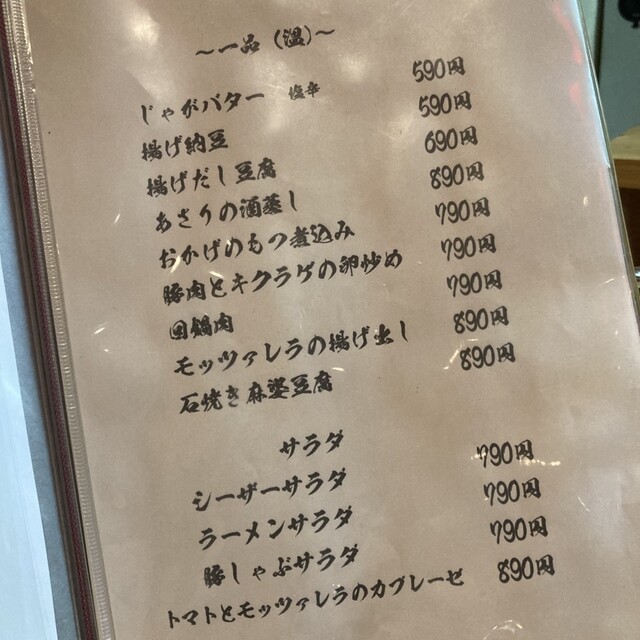 ～一品（温）～
じゃがバター 塩辛 590円
揚げ納豆 590円
揚げだし豆腐 690円
あさりの酒蒸し 890円
おかげのもつ煮込み 790円
豚肉とキクラゲの卵炒め 790円
回鍋肉 790円
モッツァレラの揚げ出し 890円
石焼き麻婆豆腐 890円
サラダ
シーザーサラダ 790円
ラーメンサラダ 790円
豚しゃぶサラダ 790円
トマトとモッツァレラのカプレーゼ 890円